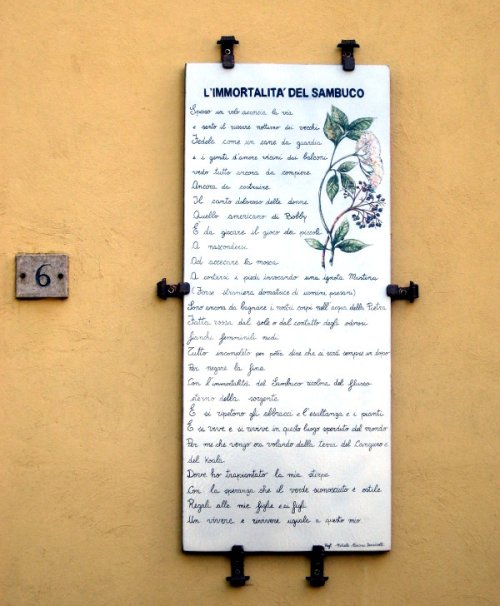 L'IMMORTALITA' DEL SAMBUCO
Spesso in volo accorcio la via
e sento il russare notturno dei vecchi
Fedele come un cane da guardia
e i gemiti d'amore vicini dei balconi
vedo tutto ancora da compiere
Ancora da costruire
Il canto doloroso delle donne
Quello americano di Bobby
È da giocare il gioco dei piccoli
A nascondersi
Ad accecare la mosca
A contarsi i piedi invocando una ignota Mintina
(Forse straniera domatrice di uomini paesani)
Sono ancora da bagnare i nostri corpi nell'acqua della Pietra
Fatta rossa dal sole o dal contatto degli odorosi
fianchi femminili nudi.
Tutto incompiuto per poter dire che ci sarà sempre un dopo
Per negare la fine
Con l'immortalità del Sambuco ricolmo del flusso
eterno della sorgente
E si ripetono gli abbracci e l'esaltanza e i pianti
E si vive e si rivive in questo luogo sperduto del mondo
Per me che vengo ora volando dalla terra del Canguro e
del Koala
Dove ho trapiantato la mia stirpe
Con la speranza che il verde sconosciuto e ostile
Regali alle mie figlie e ai figli
Un vivere e rivivere uguale a questo mio.
6